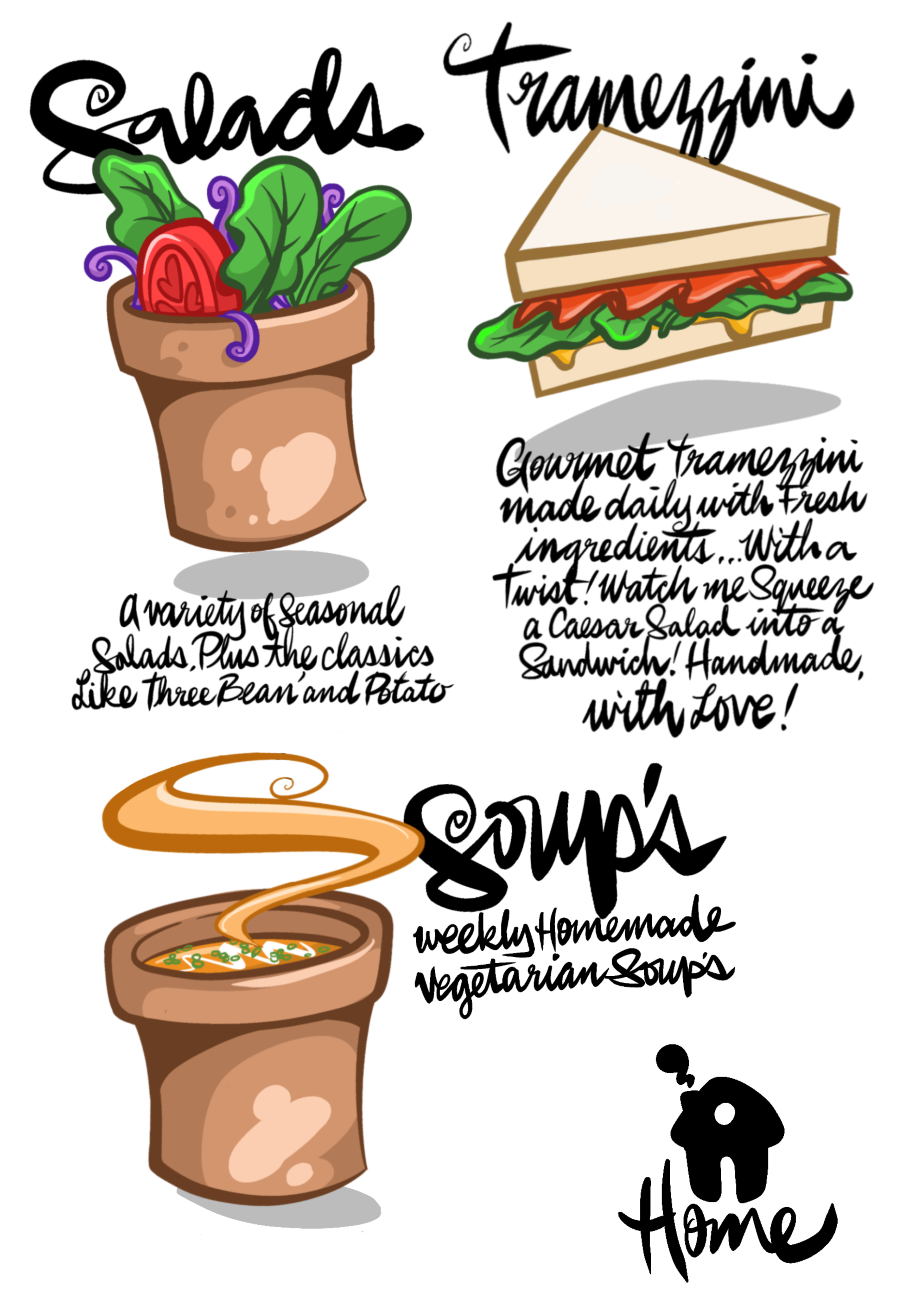 Salads
A variety of Seasonal
Salads, Plus the classics
Like Three Bean and Potato
Tramezzini
Gourmet Tramezzini
made daily with Fresh
ingredients...With a
Twist! Watch me Squeeze
a Caesar Salad into a
Sandwich! Handmade,
with Love!
Soup's
weekly Homemade
vegetarian Soup's
Home